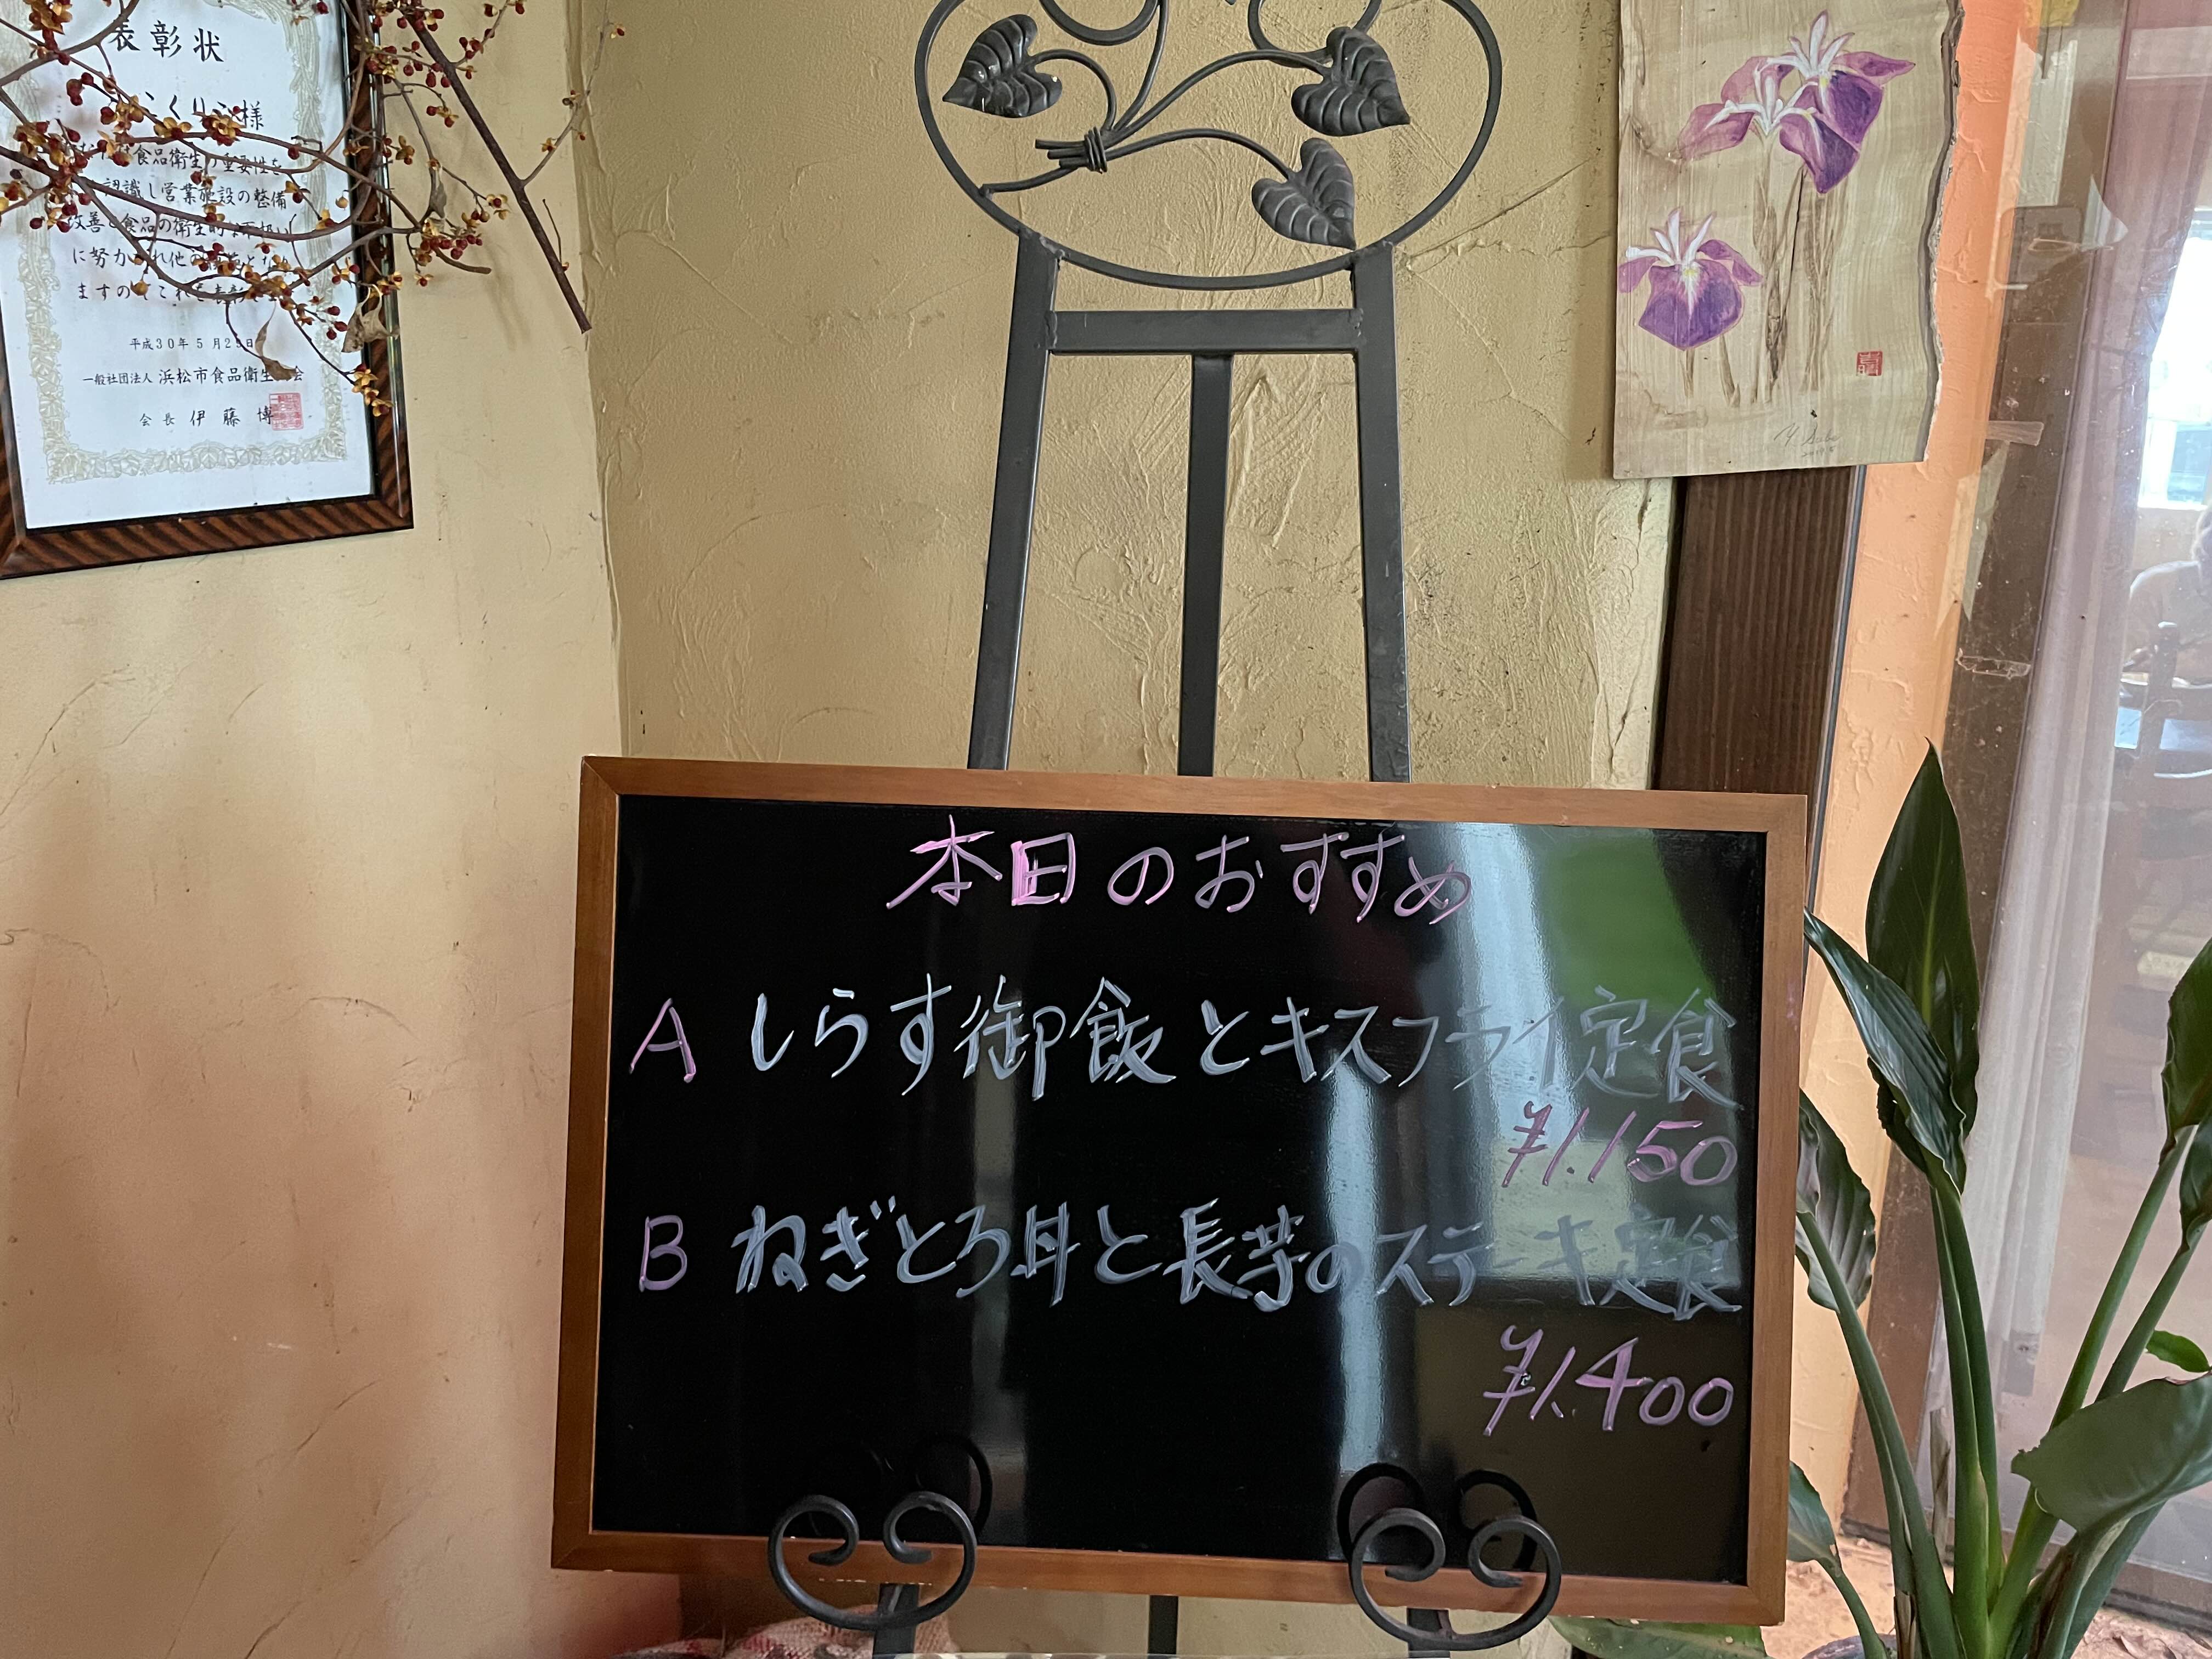 表彰状
様
食品衛生の重要性を
認識し営業施設の整備
改善と食品の衛生的な
に努
平成30年5月2
一般社団法人 浜松市食品衛生
会長 伊藤 博
本日のおすすめ
A しらす御飯とキスフライ定食
¥1.150
B ねぎとろ丼と長芋のステーキ定食
¥1.400